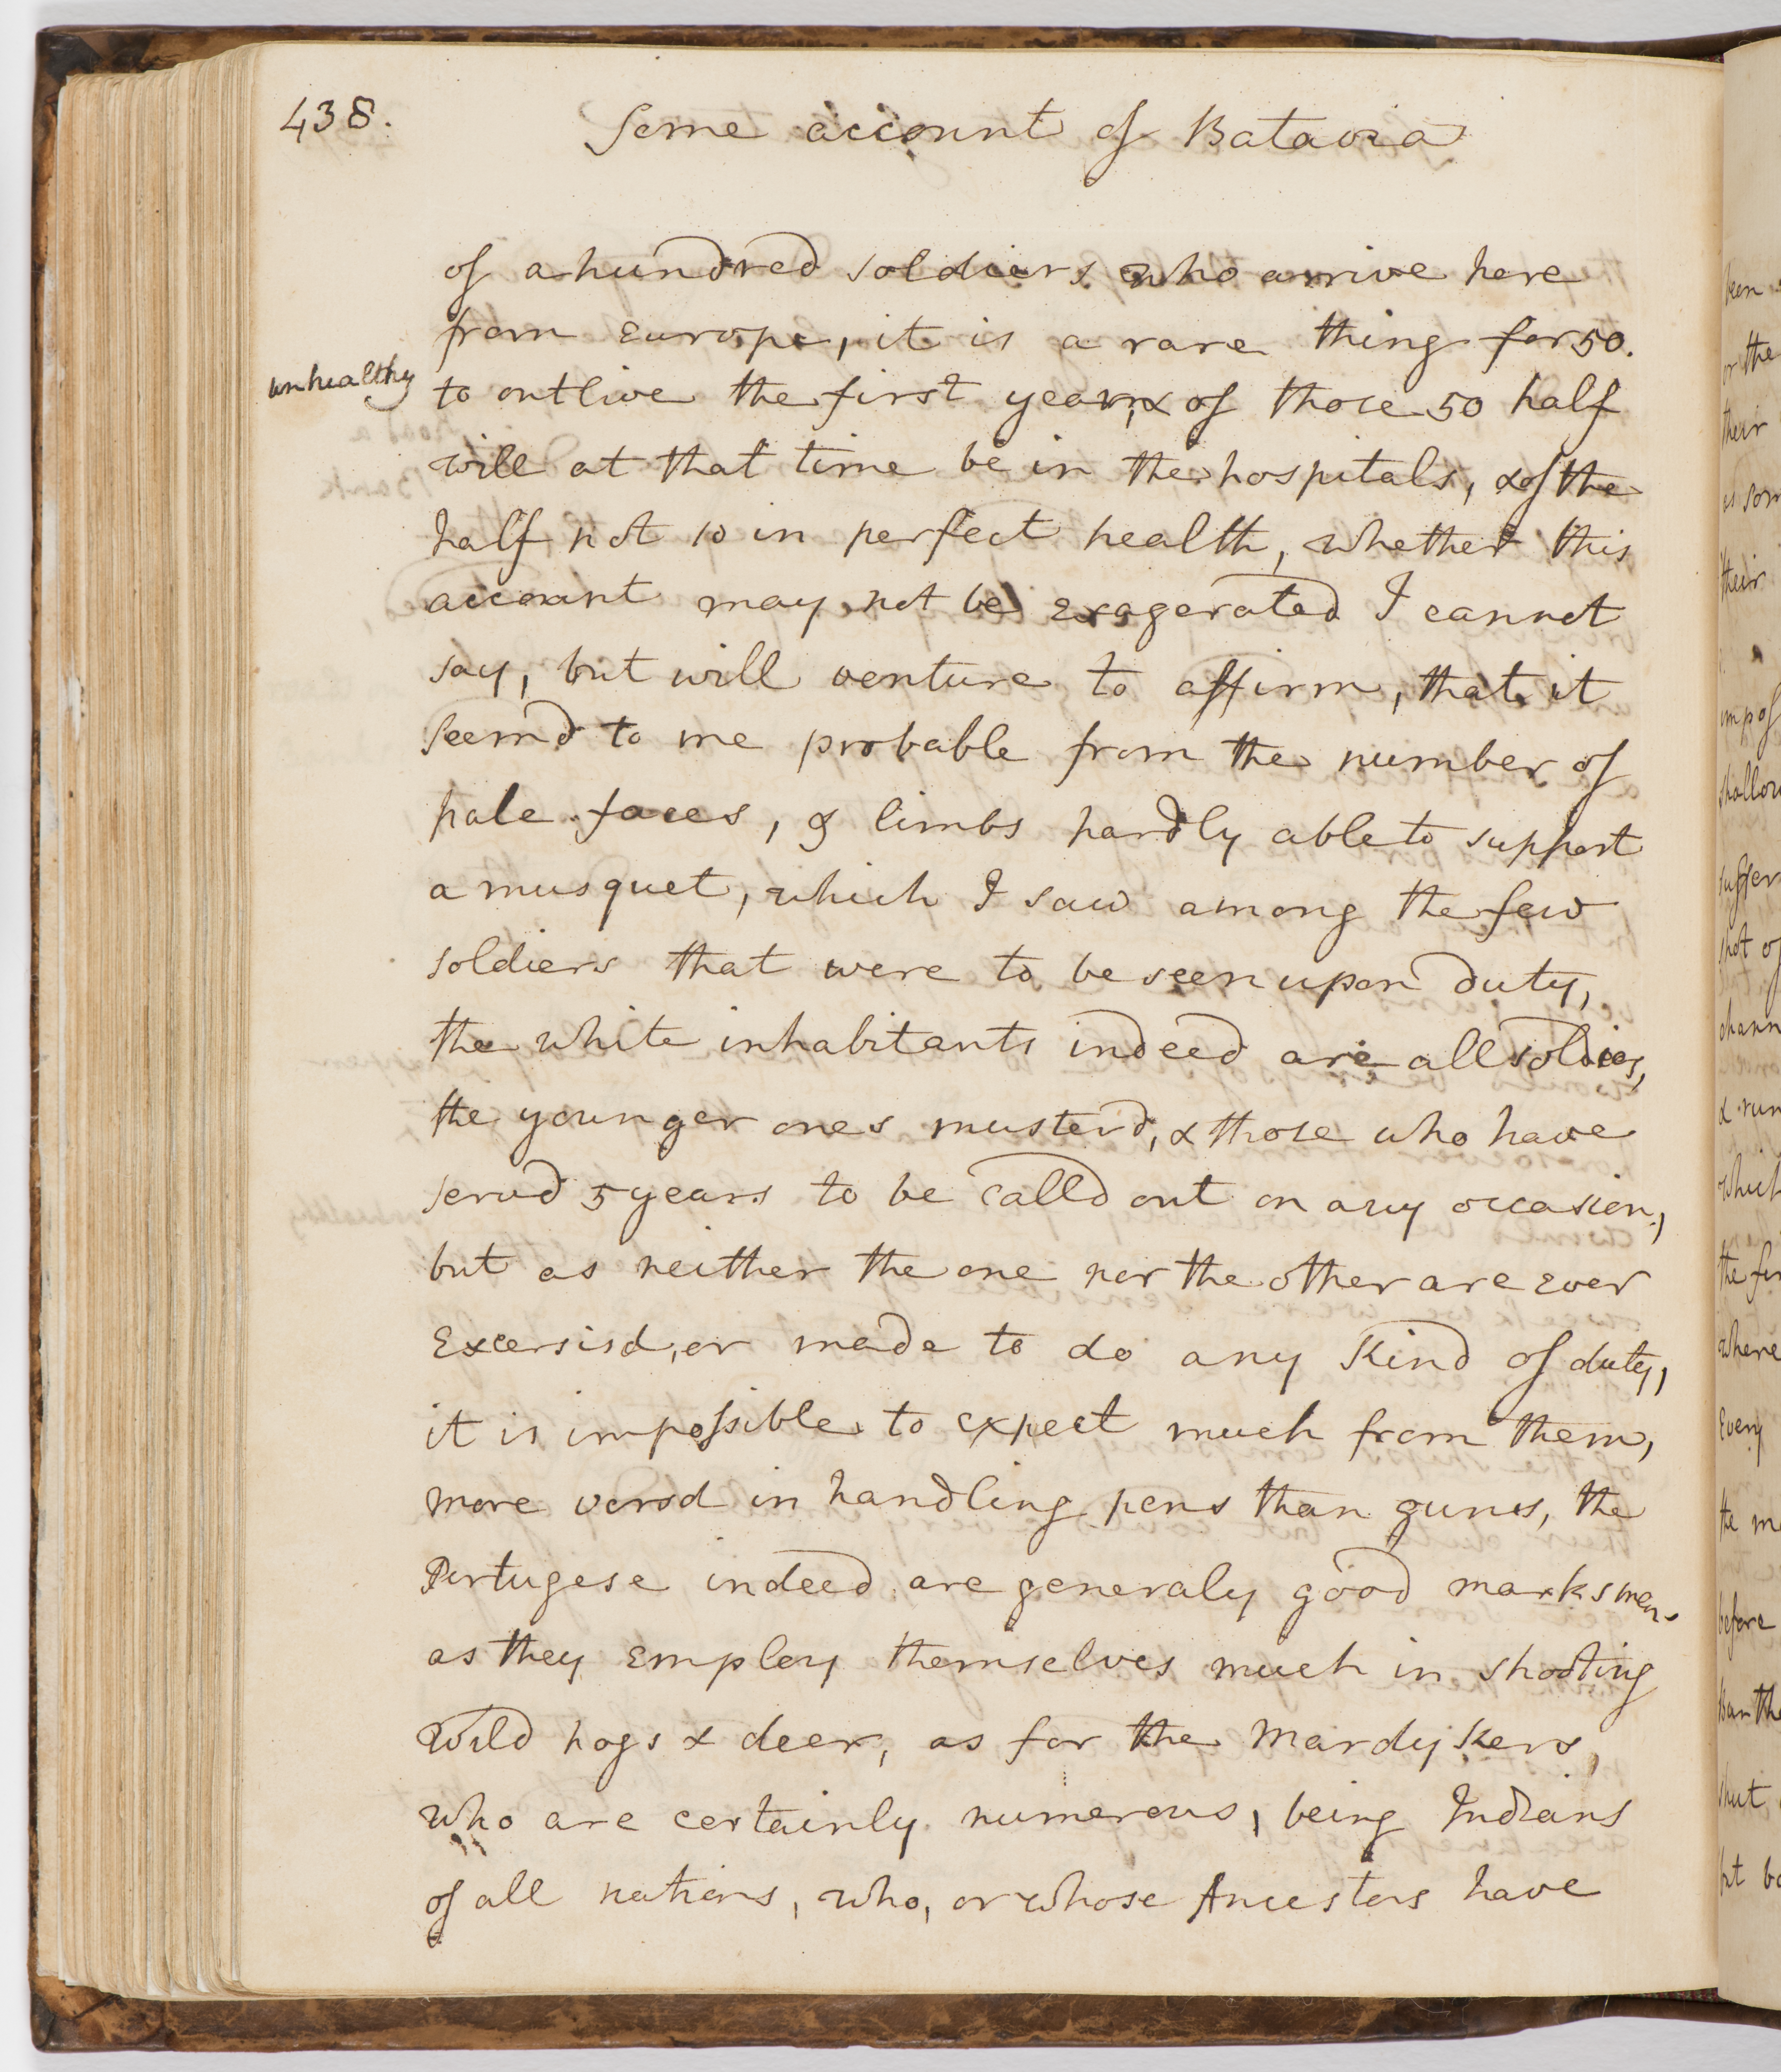 438.
Some account of Batavia
of a hundred soldiers who arrive here
from Europe, it is a rare thing for 50.
unhealthy
to outlive the first year, & of those 50 half
will at that time be in the hospitals, & of the
half not 10 in perfect health, whether this
account may not be exagerated I cannot
say, but will venture to affirm, that it
seemd to me probable from the number of
pale faces, & limbs hardly able to support
a musquet, which I saw among the few
soldiers that were to be seen upon duty,
the white inhabitants indeed are all soldiers,
the younger ones musterd, & those who have
servd 5 years to be calld out on any occasion,
but as neither the one nor the other are ever
Excersisd, or made to do any Kind of duty,
it is impossible to expect much from them,
more versd in handling pens than guns, the
Portugese indeed are generaly good marksmen
as they Employ themselves much in shooting
Wild hogs & deer, as for the Mardykers,
who are certainly numerous, being Indians
of all nations, who, or whose Ancestors have
been
or the
their
is som
their
imp of
shallow
suffer
not of
chann
& run
which
the fir
where
Every
the mo
before
Ban the
shut
but be